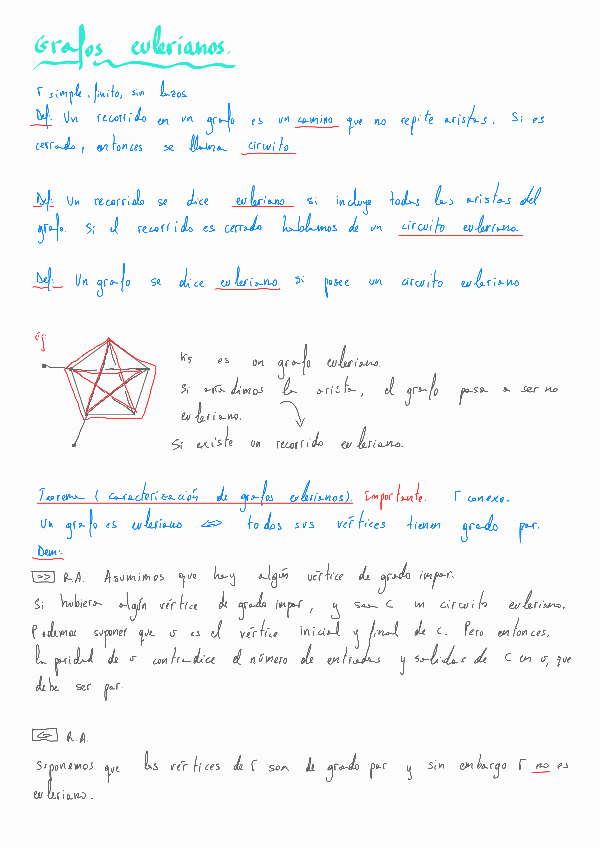 Grafos eulerianos.
Γ simple, finito, sin lazos
Def: Un recorrido en un grafo es un camino que no repite aristas. Si es
cerrado, entonces se llama circuito
Def: Un recorrido se dice euleriano si incluye todas las aristas del
grafo. Si el recorrido es cerrado hablamos de un circuito euleriano
Def: Un grafo se dice euleriano si posee un circuito euleriano
eg
K5 es un grafo euleriano.
Si añadimos la arista, el grafo pasa a ser no
euleriano.
Si existe un recorrido euleriano.
Teorema (caracterización de grafos eulerianos). Importante. Γ conexo.
Un grafo es euleriano <=> todos sus vértices tienen grado par.
Dem:
=> R.A. Asumimos que hay algún vértice de grado impar.
Si hubiera algún vértice de grado impar, y sea C un circuito euleriano.
Podemos suponer que v es el vértice inicial y final de C. Pero entonces,
la paridad de v contradice el número de entradas y salidas de C en v, que
debe ser par.
<= R.A.
Suponemos que los vértices de Γ son de grado par y sin embargo Γ no es
euleriano.